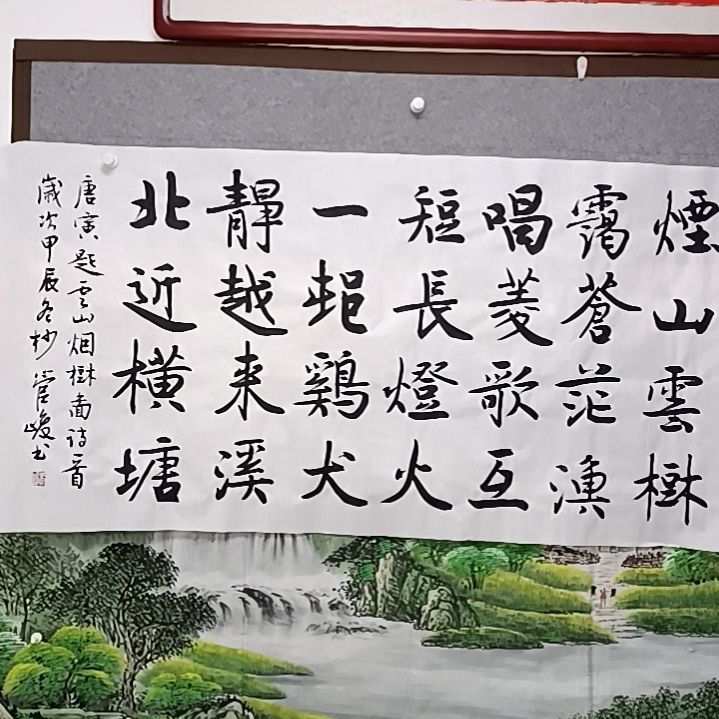 煙山雲樹
靄蒼茫漁
唱菱歌互
短長燈火
一邨鷄犬
靜越来溪
北近橫塘
唐寅題雲山烟樹圖詩一首
歲次甲辰冬杪 管峻书